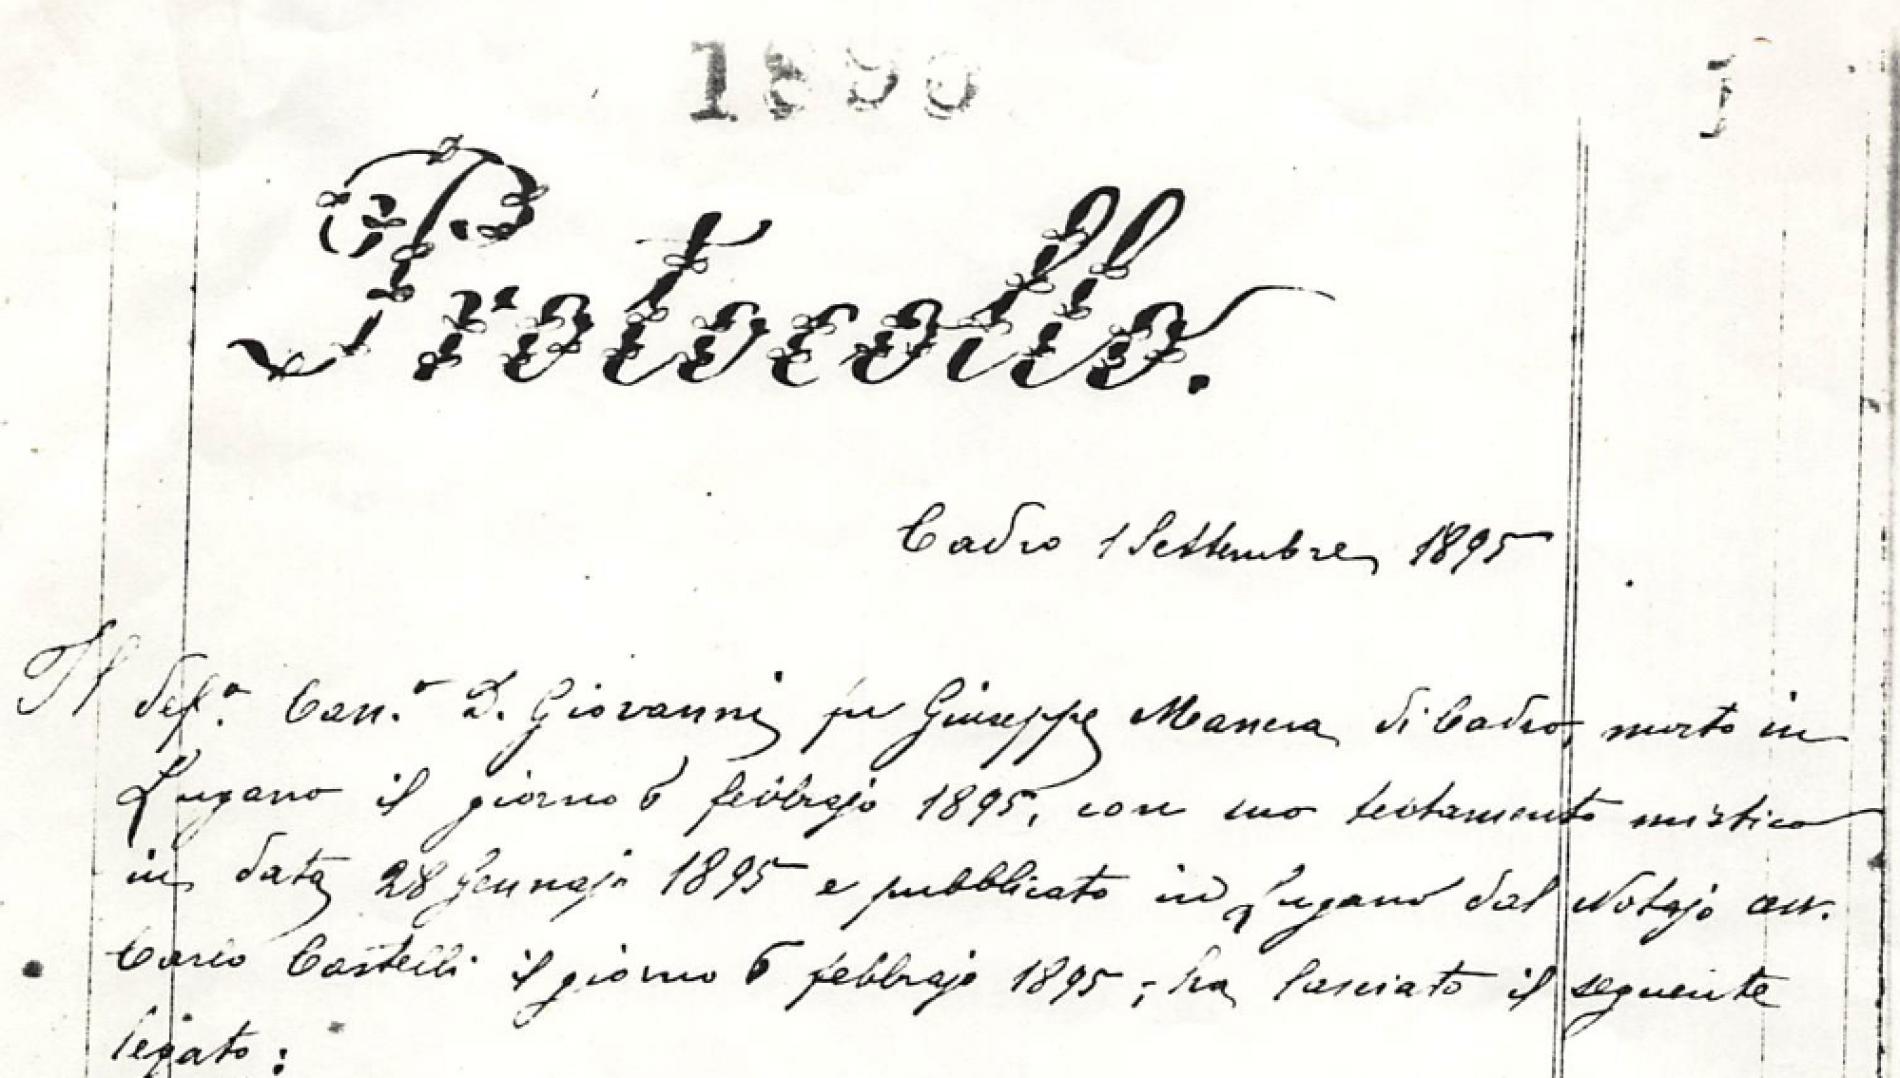 1890
1
Protocollo.
Cadro 1 Settembre 1895
Il def.º Can.º D. Giovanni fu Giuseppe Manera di Cadro, morto in
Lugano il giorno 6 febbrajo 1895, con suo testamento mistico
in data 28 Gennajo 1895 e pubblicato in Lugano dal Notajo avv.
Carlo Castelli il giorno 6 febbrajo 1895; ha lasciato il seguente
legato: